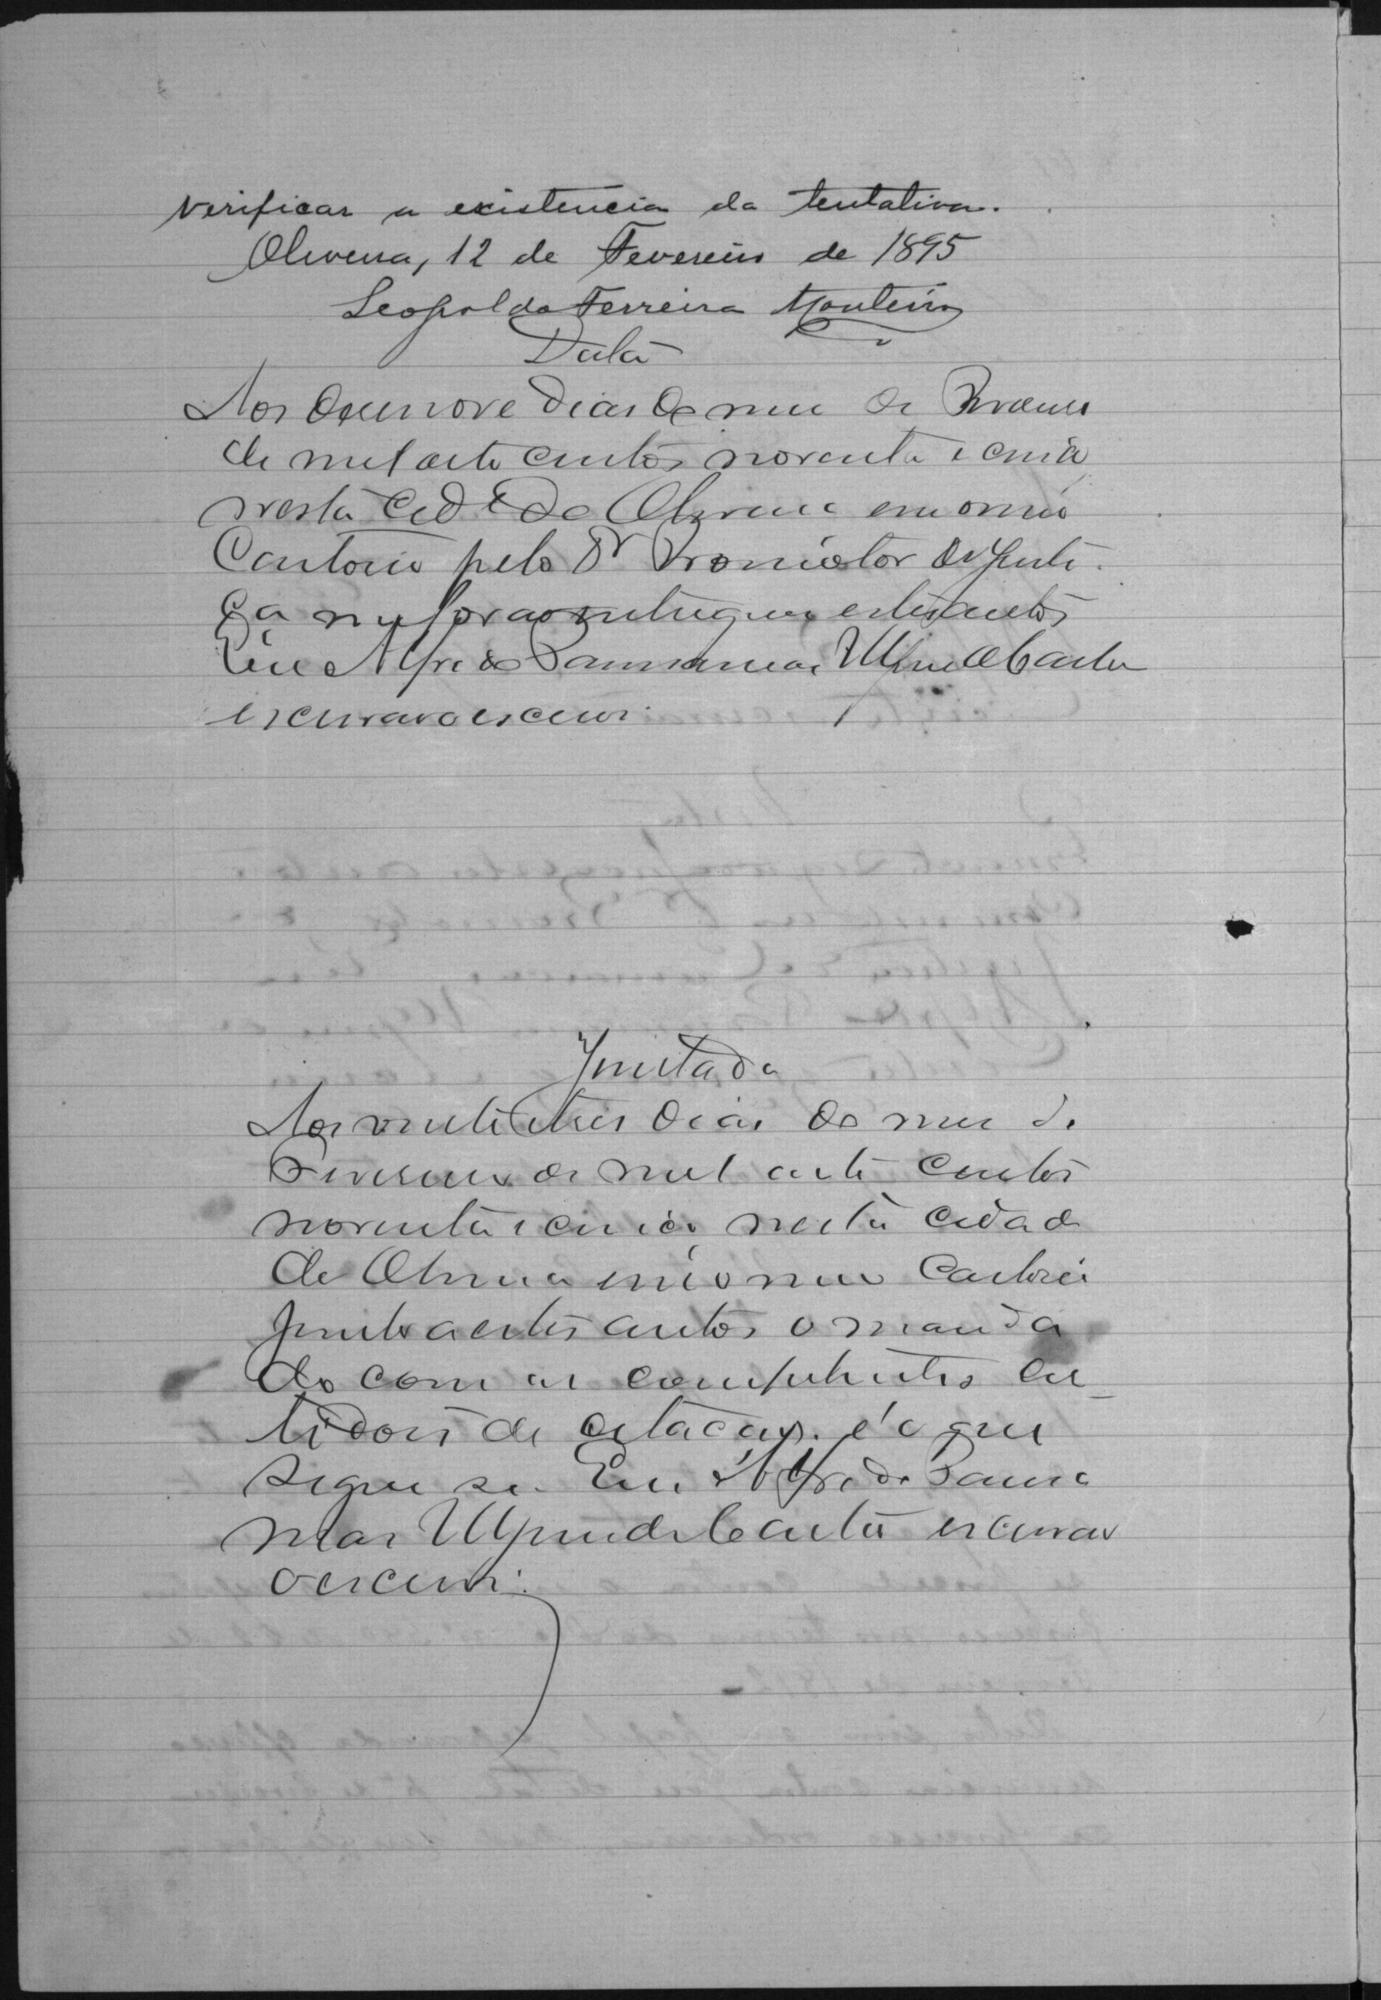 verificar a existencia da tentativa.
Oliveira, 12 de Fevereiro de 1895
Leopoldo Ferreira Monteiro
Data
Aos desenove dias do mez de Fevereiro
de mil oito centos noventa e cinco
nesta Cid.e de Oliveira em o meo
Cartorio pelo Dr Promotor de Justi
ça me forão entregues estes autos
Eu Alfredo
escrivão o escrevi
Juntada
Aos vinte e tres dias do mez de
Fevereiro de mil oito centos
noventa e cinco nesta cidade
de Oliveira em o meu Cartorio
junto a estes autos o manda
do com as competentes cer-
tidoes de citação. é o que
segue se. Eu Alfredo
escrivão
o escrevi.